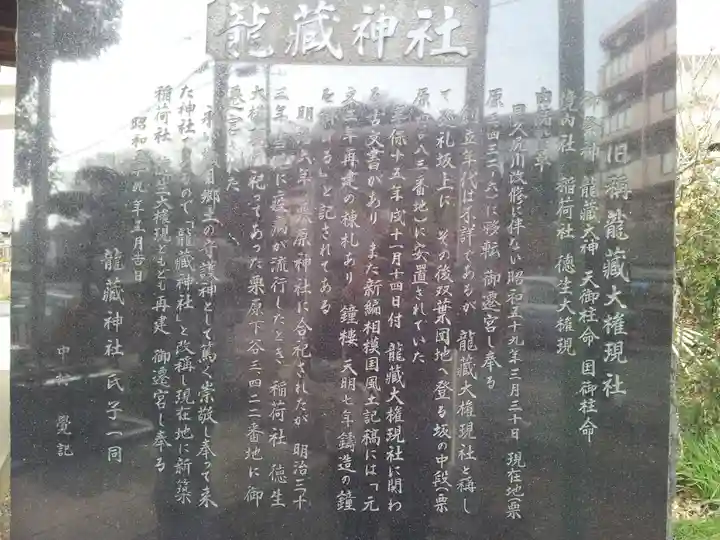 龍藏神社
旧稱龍藏大権現社
御祭神 龍藏大神 天御柱命 国御柱命
境内社 稲荷社 徳生大権現
由緒沿革
目久尻川改修に伴ない昭和五十九年三月三十日 現在地栗
原三四三二(六)に移転 御遷宮し奉る
創立年代は不詳であるが 龍藏大権現社と稱し
て 札坂上に その後双葉団地へ登る坂の中段(栗
原 八三一番地)に安置されていた
享保十五年戌十一月十四日付 龍藏大権現社に関わ
る古文書があり また新編相模国風土記稿には「元
文二年再建の棟札あり 鐘樓 天明七年鋳造の鐘
を る」と記されてある
明治 六年 栗原神社に合祀されたが 明治三十
三年 に疫病が流行したとき 稲荷社 徳生
大権 祀ってあった栗原下谷三四二二番地に御
遷 した
来 郷土の守護神として篤く崇敬し奉って来
た神社 もので「龍藏神社」と改稱し現在地に新築
稲荷社 徳生大権現ともども再建 御遷宮し奉る
昭和五十九年 月吉日
龍藏神社氏子一同
中 覺記